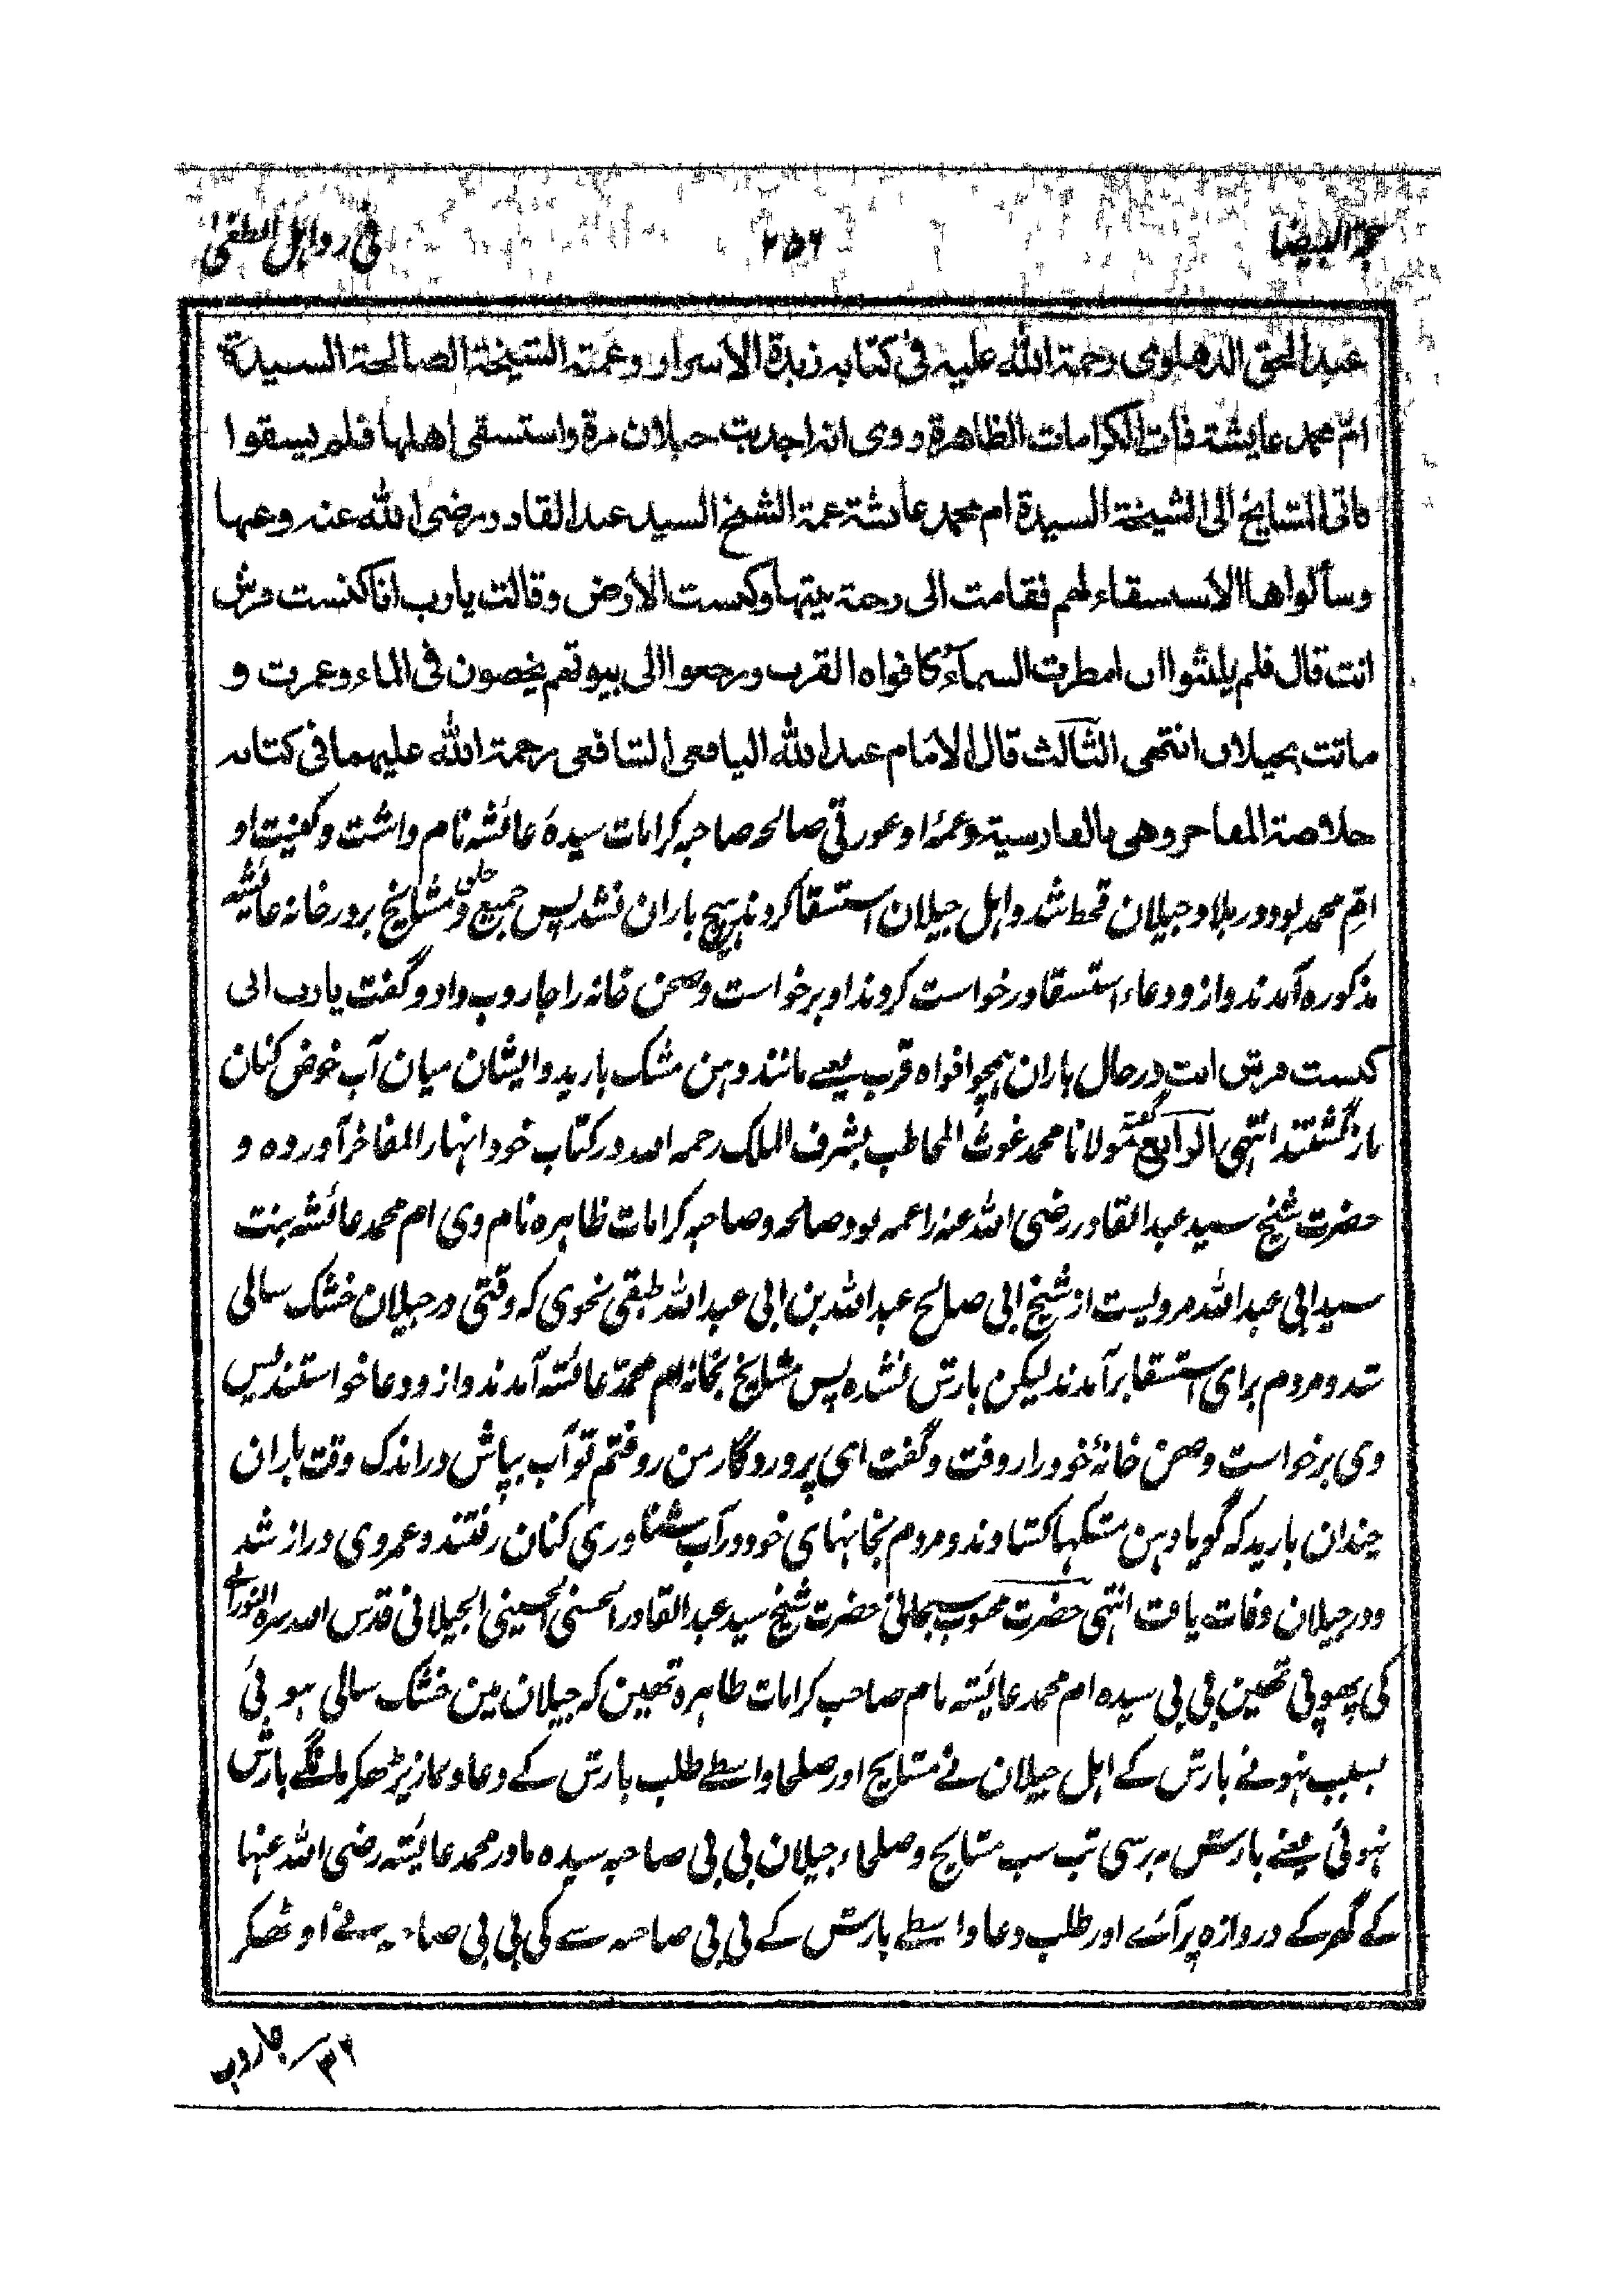 ۲۵۶
عبد الحق الدهلوی رحمة الله علیه فی کتابه زبدة الاسرار وعمته الشیخة الصالحة السیدة
ام محمد عایشة ذات الکرامات الظاهرة روی انه اجدبت جیلان مرة واستسقی اهلها فلم یسقوا
فاتی المشایخ الی الشیخة السیدة ام محمد عائشة عمة الشیخ السید عبد القادر رضی الله عنه وعنها
وسألواها الاستسقاء لهم فقامت الی رحبة بیتها وکنست الارض وقالت یارب انا کنست فرش
انت قال فلم یلبثوا ان امطرت السماء کافواه القرب ورجعوا الی بیوتهم یخوضون فی الماء وعمرت و
ماتت بجیلان انتهی الثالث قال الامام عبد الله الیافعی الشافعی رحمة الله علیهما فی کتابه
خلاصة المفاخر وهی بالفارسیة وعمهٔ او عورتی صالحه صاحبه کرامات سیده عائشه نام داشت وکنیت او
ام محمد بود در بلاد جیلان قحط شد و اهل جیلان استسقا کردند هیچ باران نشد پس جمیع خلق و مشایخ بر در خانه عائشه
مذکوره آمدند و از و دعاء استسقا درخواست کردند او برخواست و صحن خانه را جاروب داد و گفت یارب انی
کنست فرش انت در حال باران همچو افواه قرب یعنے مانند دهن مشک بارید و ایشان میان آب خوض کنان
بازگشتند انتهی الرابع گفته مولانا محمد غوث المخاطب بشرف الملک رحمه الله در کتاب خود انهار المفاخر آورده و
حضرت شیخ سید عبد القادر رضی الله عنه را عمه بود صالحه و صاحبه کرامات ظاهره نام وی ام محمد عائشه بنت
سید ابی عبد الله مرویست از شیخ ابی صالح عبد الله بن ابی عبد الله طبقی نحوی که وقتی در جیلان خشک سالی
شد و مردم برای استسقا برآمدند لیکن بارش نشده پس مشایخ بخانه ام محمد عائشه آمدند و از و دعا خواستند پس
وی برخواست و صحن خانهٔ خود را روفت و گفت ای پروردگار من روفتم تو آب بپاش در اندک وقت باران
چندان بارید که گویا دهن مشکها کشادند و مردم بخانهای خود در آب شناوری کنان رفتند و عمر وی دراز شد
و در جیلان وفات یافت انتهی حضرت محبوب سبحانی حضرت شیخ سید عبد القادر الحسنی الحسینی الجیلانی قدس الله سره النورانے
کی پھوپی تھین بی بی سیده ام محمد عایشه نام صاحب کرامات ظاهره تھین که جیلان مین خشک سالی ہوئی
بسبب نہونے بارش کے اہل جیلان نے مشایخ اور صلحا واسطے طلب بارش کے دعا و نماز پڑھکر مانگے بارش
نہوئی یعنے بارش نہ برسی تب سب مشایخ و صلحاء جیلان بی بی صاحبه سیده مادر محمد عایشه رضی الله عنها
کے گھر کے دروازه پر آئے اور طلب دعا واسطے بارش کے بی بی صاحبه سے کی بی بی صاحبه نے اوٹھکر
جاروب